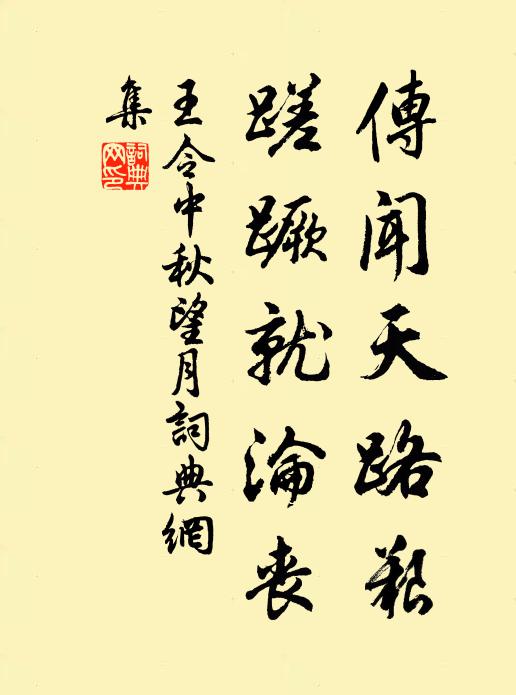 傳聞天路艱
蹉蹶就淪喪
王令中秋望月詞典網
集
詞典網印